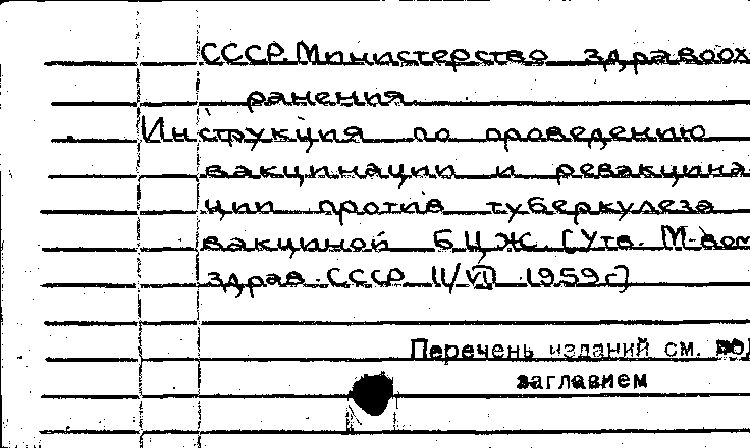 СССР. Министерство здравоох
ранения
Инструкция по проведению
вакцинации и ревакцина-
ции против туберкулеза
вакциной БЦЖ. [Утв. М-вом
здрав. СССР 11/VII 1959г.]
Перечень изданий см. под
заглавием